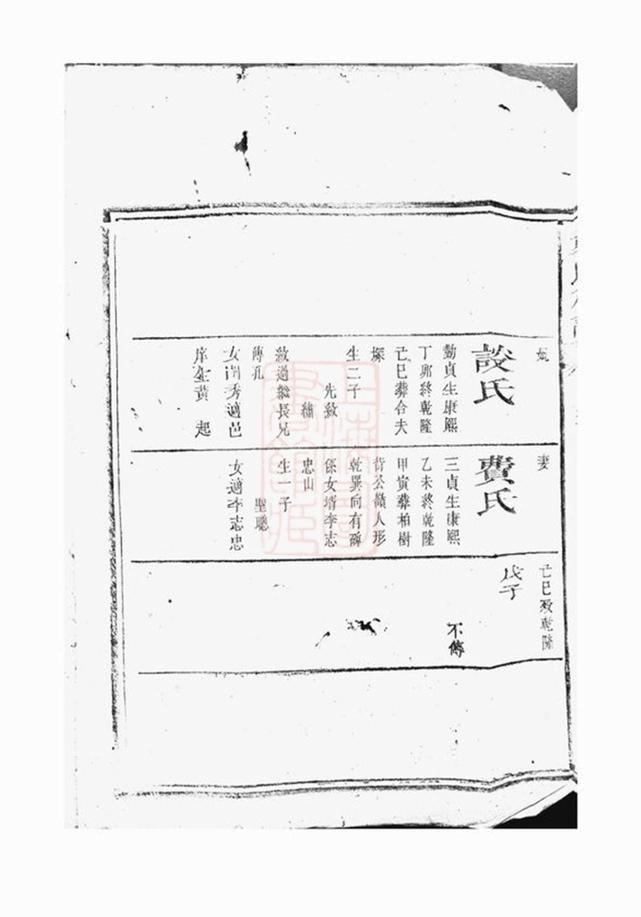 段氏
勤貞生康熙
丁卯終乾隆
己巳葬合夫
塚
生二子
先敘
敘過繼長兄
傳孔
庠生黃 起
妻
費氏
三貞生康熙
乙未終乾隆
甲寅葬柏樹
背公嶺人形
乾巽向有碑
係女壻李志
忠山
生一子
聖聰
女適李志忠
己巳歿乾隆
戊子
不傳